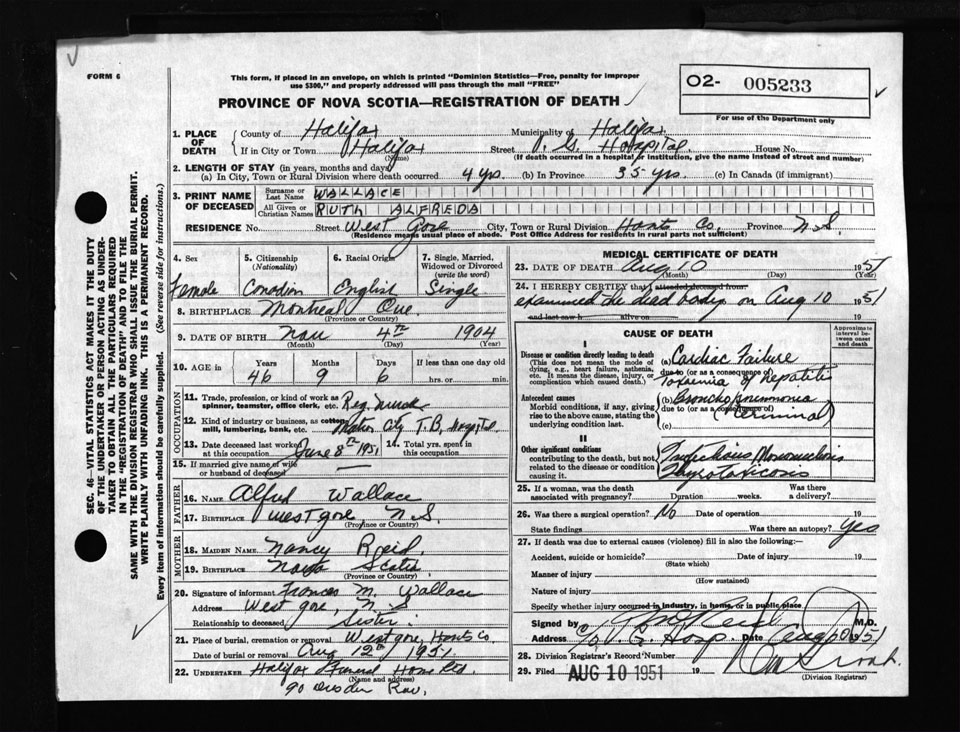 FORM 6
This form, if placed in an envelope, on which is printed "Dominion Statistics—Free, penalty for improper
use $300," and properly addressed will pass through the mail "FREE"
O2- 005233
For use of the Department only
PROVINCE OF NOVA SCOTIA—REGISTRATION OF DEATH
SEC. 46—VITAL STATISTICS ACT MAKES IT THE DUTY
OF THE UNDERTAKER OR PERSON ACTING AS UNDER-
TAKER TO OBTAIN ALL THE PARTICULARS REQUIRED
IN THE "REGISTRATION OF DEATH" AND TO FILE THE
SAME WITH THE DIVISION REGISTRAR WHO SHALL ISSUE THE BURIAL PERMIT.
WRITE PLAINLY WITH UNFADING INK. THIS IS A PERMANENT RECORD.
Every item of information should be carefully supplied. (See reverse side for instructions.)
1. PLACE OF DEATH
County of Halifax Municipality of Halifax
If in City or Town Halifax Street V. G. Hospital House No.
(Name) (If death occurred in a hospital or institution, give the name instead of street and number)
2. LENGTH OF STAY (in years, months and days)
(a) In City, Town or Rural Division where death occurred 4 yrs. (b) In Province 35 yrs. (c) In Canada (if immigrant)
3. PRINT NAME OF DECEASED
Surname or Last Name WALLACE
All Given or Christian Names RUTH ALFREDA
RESIDENCE No. Street West Gore City, Town or Rural Division Hants Co. Province N.S.
(Residence means usual place of abode. Post Office Address for residents in rural parts not sufficient)
4. Sex 5. Citizenship (Nationality) 6. Racial Origin 7. Single, Married, Widowed or Divorced (write the word)
Female Canadian English Single
8. BIRTHPLACE Montreal Que
(Province or Country)
9. DATE OF BIRTH Nov 4th 1904
(Month) (Day) (Year)
10. AGE in Years Months Days If less than one day old
46 9 6 hrs. or min.
OCCUPATION
11. Trade, profession, or kind of work as spinner, teamster, office clerk, etc. Reg. Nurse
12. Kind of industry or business, as cotton mill, lumbering, bank, etc. City T.B. Hospital
13. Date deceased last worked at this occupation June 8th 1951 14. Total yrs. spent in this occupation
15. If married give name of wife or husband of deceased
FATHER
16. Name Alfred Wallace
17. BIRTHPLACE West gore N.S.
(Province or Country)
MOTHER
18. MAIDEN NAME Nancy Reid.
19. BIRTHPLACE Nova Scotia
(Province or Country)
20. Signature of informant Frances M. Wallace
Address West gore, N S
Relationship to deceased Sister.
21. Place of burial, cremation or removal West gore, Hants Co.
Date of burial or removal Aug 12th 1951.
22. UNDERTAKER Halifax Funeral Home Ltd
(Name and address)
90 Dresden Row.
MEDICAL CERTIFICATE OF DEATH
23. DATE OF DEATH Aug 10 1951
(Month) (Day) (Year)
24. I HEREBY CERTIFY that I attended deceased from
examined the dead body on Aug 10 1951
and last saw h alive on 19
CAUSE OF DEATH
Approximate interval between onset and death
I
Disease or condition directly leading to death
(This does not mean the mode of dying, e.g., heart failure, asthenia, etc. It means the disease, injury, or complication which caused death.)
(a) Cardiac Failure
due to (or as a consequence of)
Toxaemia of hepatitis
Antecedent causes
Morbid conditions, if any, giving rise to the above cause, stating the underlying condition last.
(b) Bronchopneumonia
due to (or as a consequence of)
(Terminal)
(c)
II
Other significant conditions
contributing to the death, but not related to the disease or condition causing it.
Infectious Mononucleosis
Thyrotoxicosis
25. If a woman, was the death associated with pregnancy? Duration weeks. Was there a delivery?
26. Was there a surgical operation? No Date of operation 19
State findings Was there an autopsy? Yes
27. If death was due to external causes (violence) fill in also the following:—
Accident, suicide or homicide? Date of injury 19
(State which)
Manner of injury
(How sustained)
Nature of injury
Specify whether injury occurred in industry, in home, or in public place
Signed by M.D.
Address c/o V. G. Hosp. Date Aug 10 1951
28. Division Registrar's Record Number
29. Filed AUG 10 1951 19
(Division Registrar)